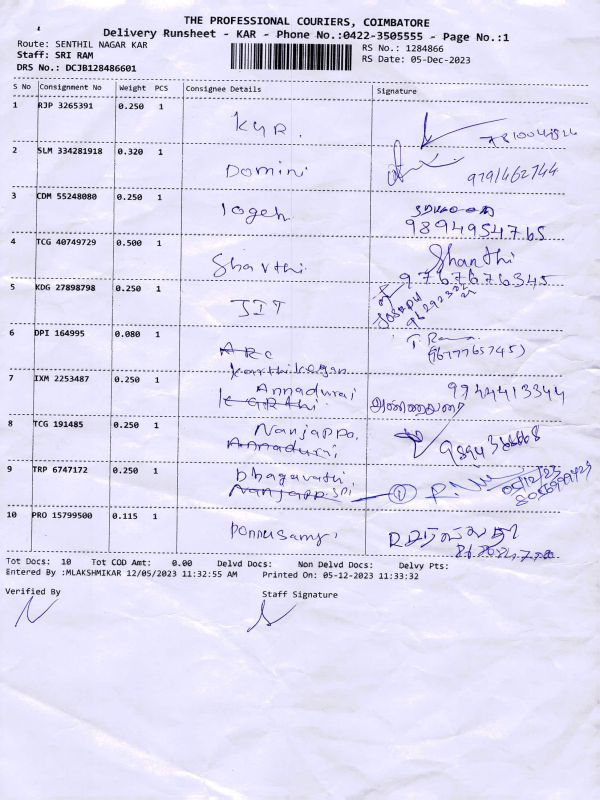 THE PROFESSIONAL COURIERS, COIMBATORE
Delivery Runsheet - KAR - Phone No.:0422-3505555 - Page No.:1
Route: SENTHIL NAGAR KAR RS No.: 1284866
Staff: SRI RAM RS Date: 05-Dec-2023
DRS No.: DCJB128486601
S No Consignment No Weight PCS Consignee Details Signature
1 RJP 3265391 0.250 1
KYR.
2 SLM 334281918 0.320 1
Domini 9791462744
3 CDM 55248080 0.250 1
Iogeh 9894954765
4 TCG 40749729 0.500 1 Shanthi
Sharthi 9767676345
5 KDG 27898798 0.250 1
JIT JOSEPH
6 DPI 164995 0.080 1 T. Rama
ARC (9677765745)
Karthikeyan
7 IXM 2253487 0.250 1 Annadurai 9944413344
K GRthi அண்ணாதுரை
8 TCG 191485 0.250 1 Nanjappa
Annadurai
9 TRP 6747172 0.250 1 bhagavathi 05/12/23
Nanjapp 1
10 PRO 15799500 0.115 1
ponnusamy
Tot Docs: 10 Tot COD Amt: 0.00 Delvd Docs: Non Delvd Docs: Delvy Pts:
Entered By :MLAKSHMIKAR 12/05/2023 11:32:55 AM Printed On: 05-12-2023 11:33:32
Verified By Staff Signature